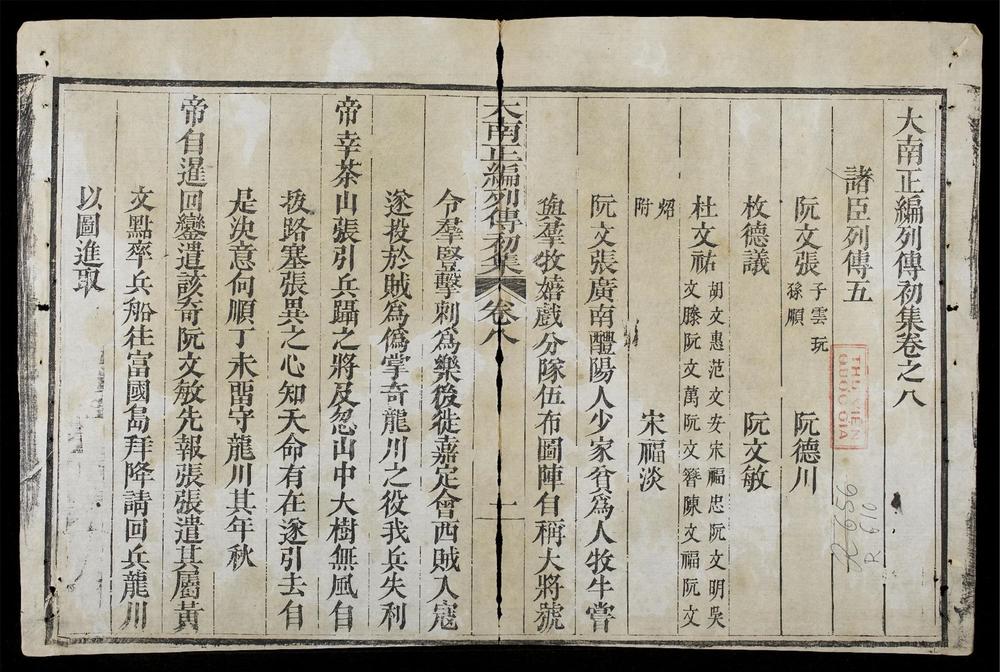 大南正編列傳初集卷之八
諸臣列傳五
阮文張 子雲 玩 孫順 阮德川
枚德議 阮文敏
杜文祐 胡文惠范文安宋福忠阮文明吳
文滕阮文萬阮文簪陳文福阮文
炤附 宋福淡
阮文張廣南醴陽人少家貧為人牧牛嘗
與羣牧嬉戲分隊伍布圖陣自稱大將號
大南正編列傳初集 卷八 一
令羣豎擊刺為樂後徙嘉定會西賊入寇
遂投於賊為偽掌奇龍川之役我兵失利
帝幸茶山張引兵躡之將及忽山中大樹無風自
拔路塞張異之心知天命有在遂引去自
是決意向順丁未畱守龍川其年秋
帝自暹回鑾遣該奇阮文敏先報張張遣其屬黃
文點率兵船往富國島拜降請回兵龍川
以圖進取
THƯ VIỆN
QUỐC GIA
R 656
R 610